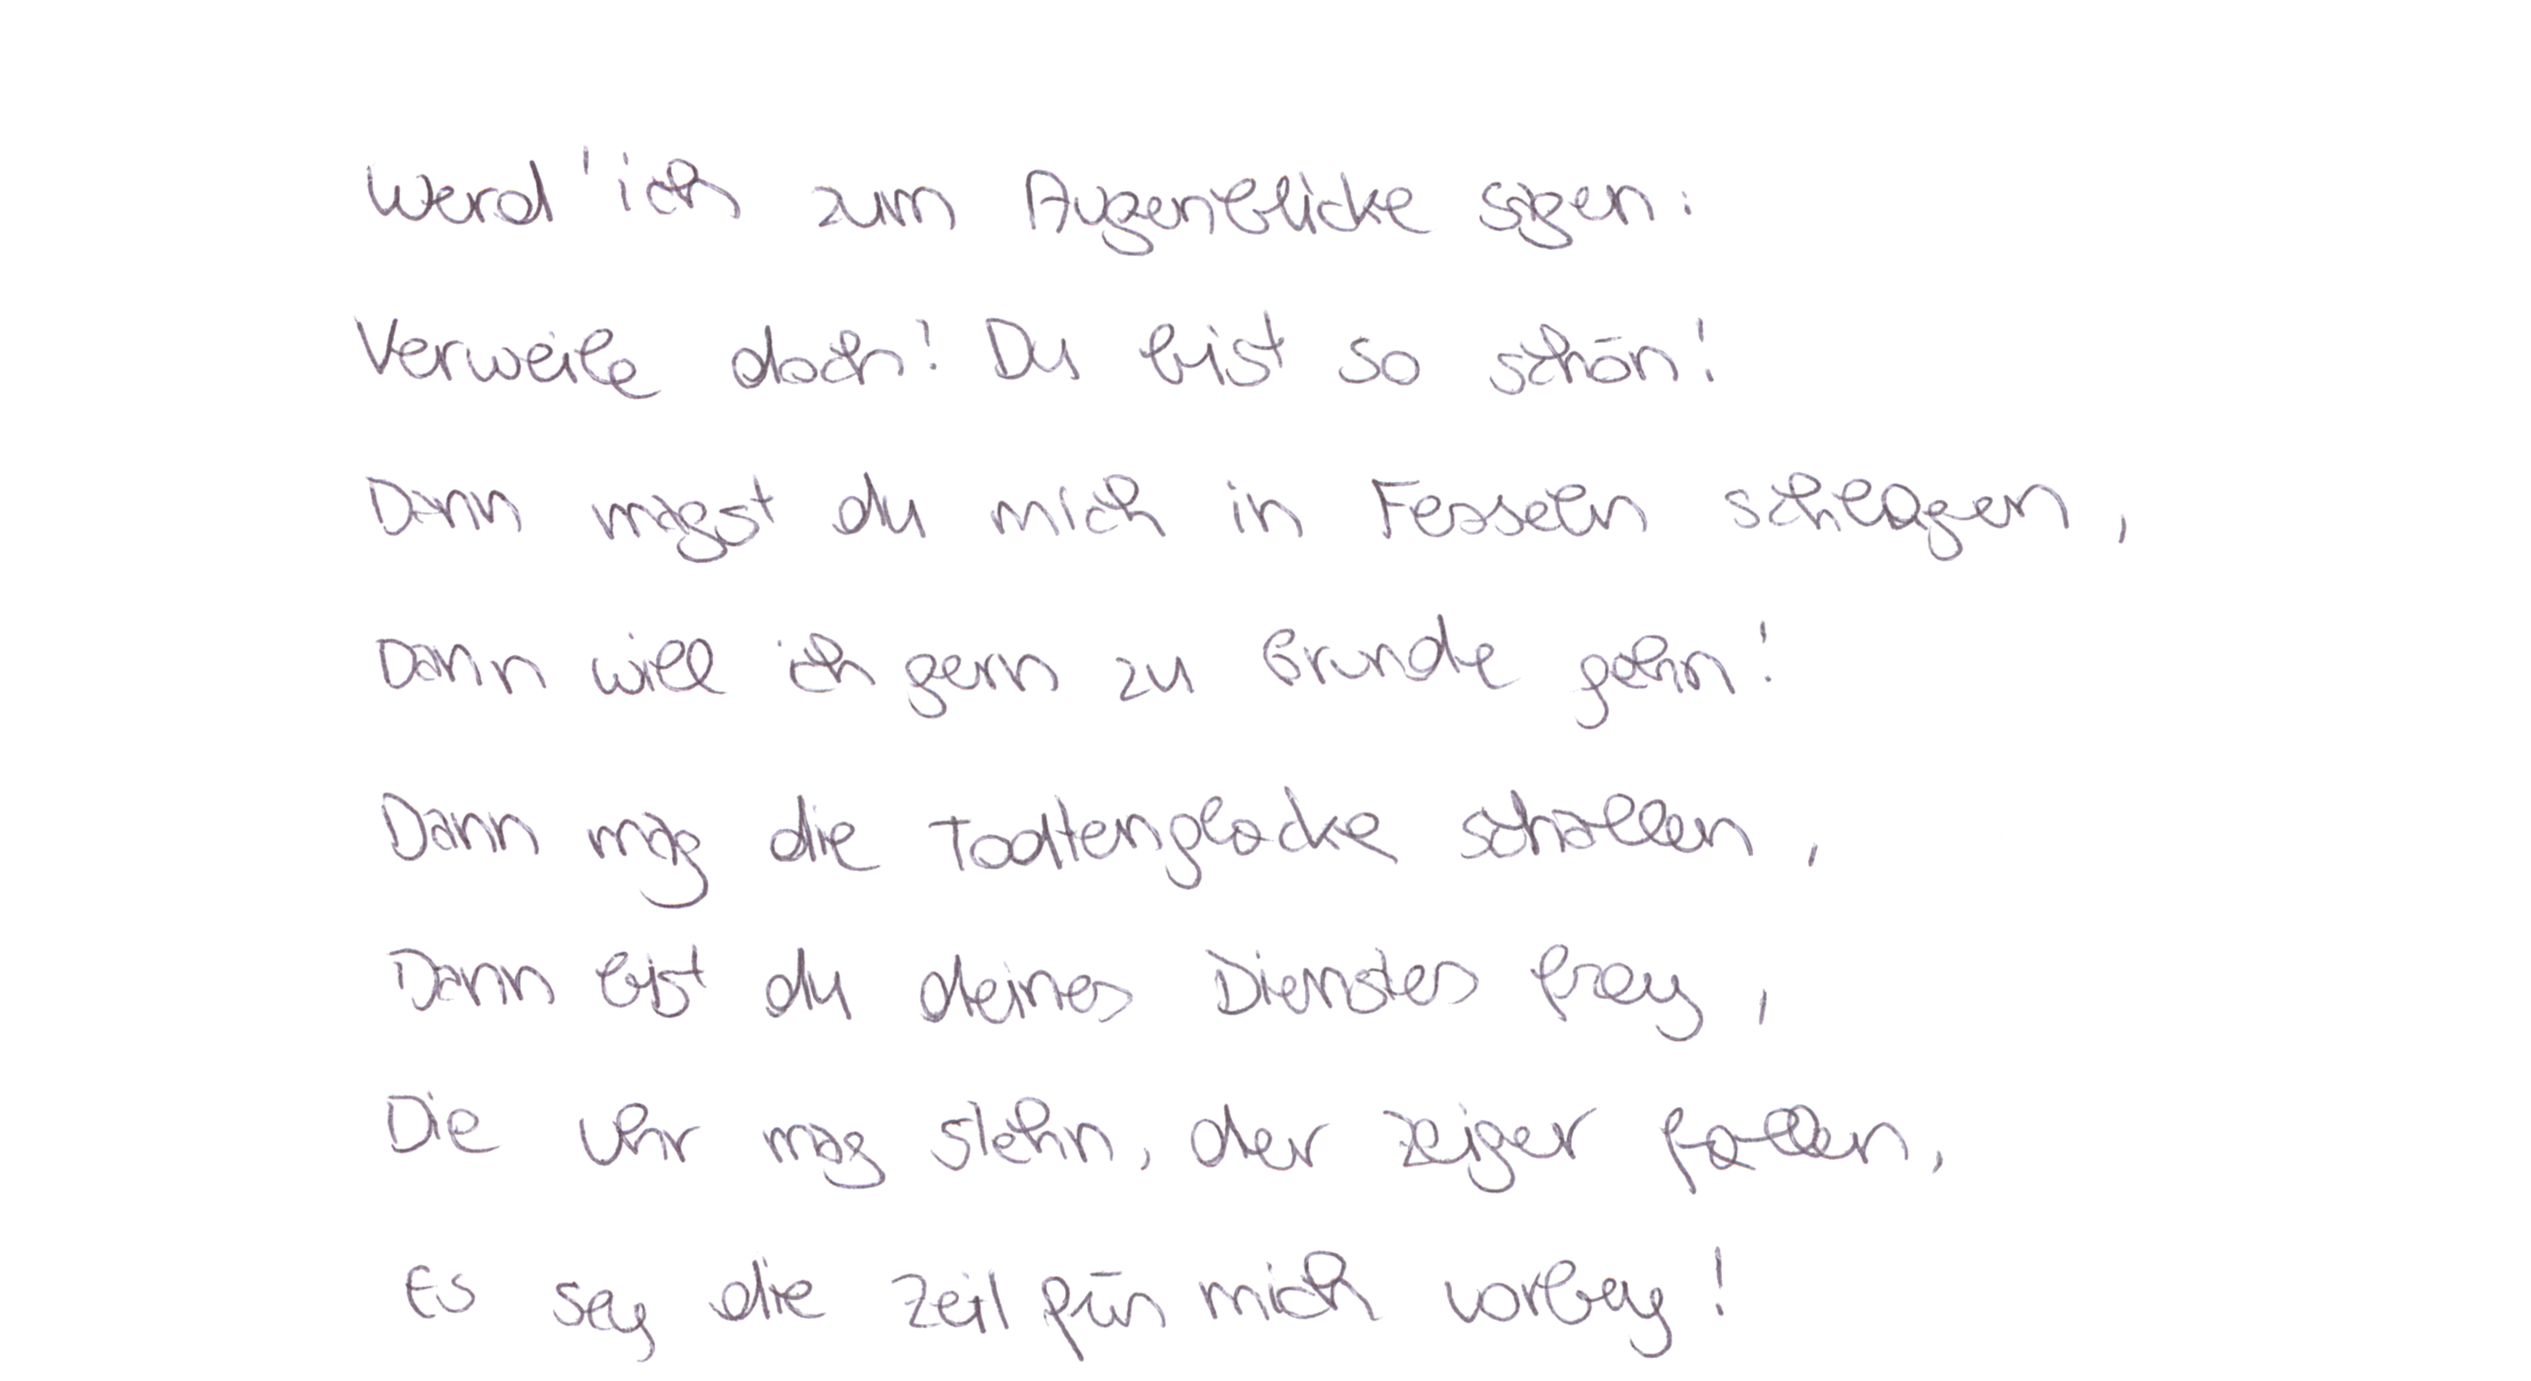 Werd' ich zum Augenblicke sagen:
Verweile doch! Du bist so schön!
Dann magst du mich in Fesseln schlagen,
Dann will ich gern zu Grunde gehn!
Dann mag die Todtenglocke schallen,
Dann bist du deines Dienstes frey,
Die Uhr mag stehn, der Zeiger fallen,
Es sey die Zeit für mich vorbey!